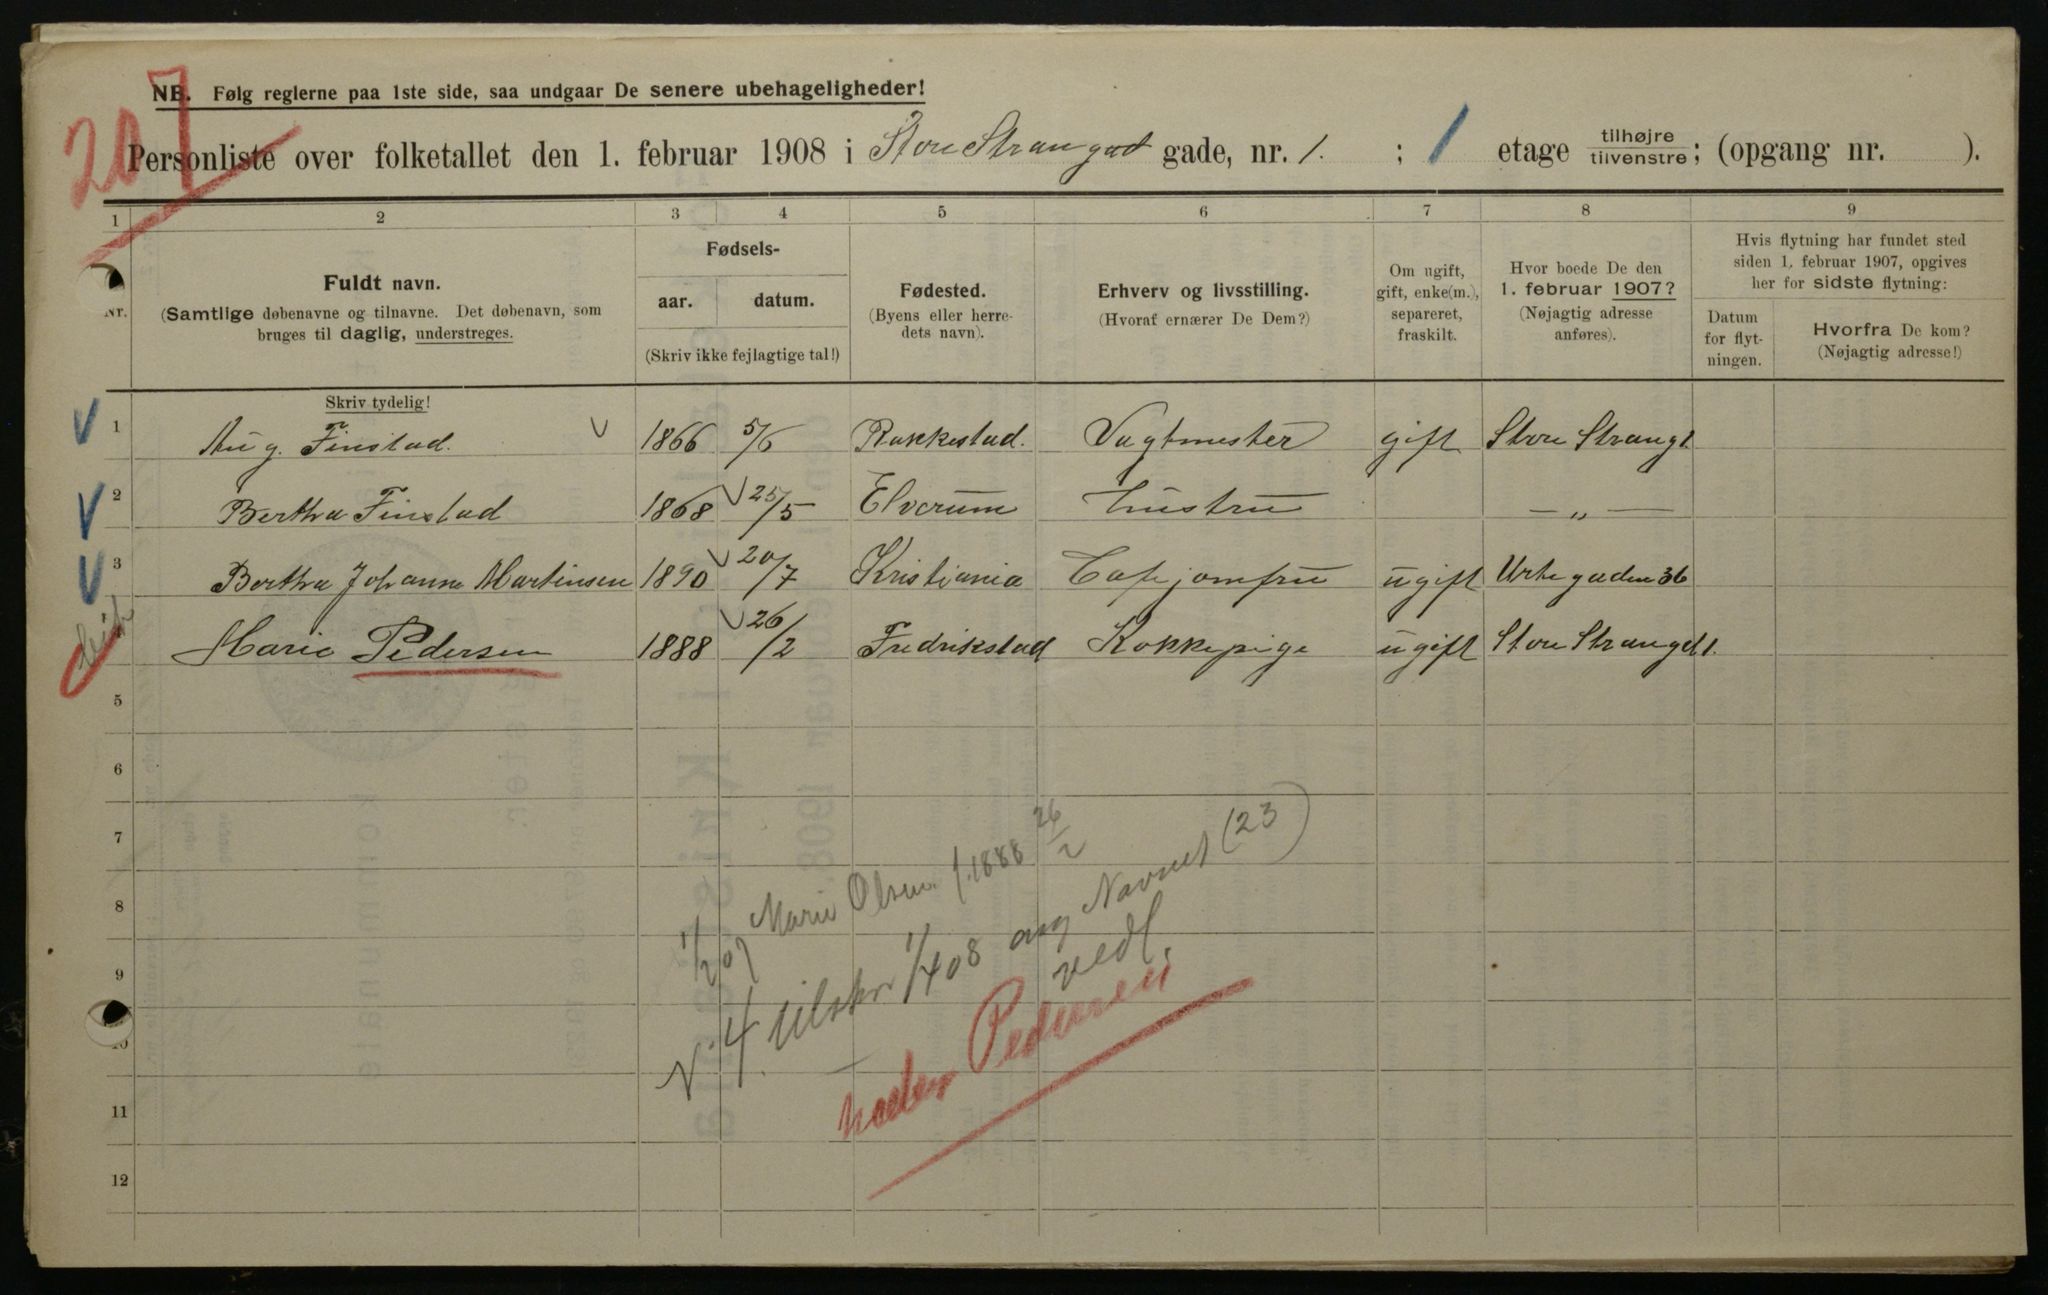 207
NB. Følg reglerne paa 1ste side, saa undgaar De senere ubehageligheder!
Personliste over folketallet den 1. februar 1908 i Store Strangad gade, nr. 1. ; 1 etage tilhøjre tilvenstre; (opgang nr. ).
1 2 3 4 5 6 7 8 9
Nr.
Fuldt navn.
(Samtlige døbenavne og tilnavne. Det døbenavn, som
bruges til daglig, understreges.
Fødsels-
aar. datum.
(Skriv ikke fejlagtige tal!)
Fødested.
(Byens eller herre-
dets navn).
Erhverv og livsstilling.
(Hvoraf ernærer De Dem?)
Om ugift,
gift, enke(m.),
separeret,
fraskilt.
Hvor boede De den
1. februar 1907?
(Nøjagtig adresse
anføres).
Hvis flytning har fundet sted
siden 1. februar 1907, opgives
her for sidste flytning:
Datum
for flyt-
ningen.
Hvorfra De kom?
(Nøjagtig adresse!)
Skriv tydelig!
1 Aug. Finstad. 1866 5/6 Rakkestad. Vagtmester gift Store Strangt
2 Bertha Finstad 1868 25/5 Elverum Hustru — „ —
3 Bertha Johanne Martinsen 1890 20/7 Kristiania Cafejomfru ugift Urtegaden 36
Marie Pedersen 1888 26/2 Fredrikstad Kokkepige ugift Store Strangd 1.
5
6
7
8
9
10
11
12
1/2 07 Marie Olsen f. 1888 26/2
N. 4 tilskr 1/4 08 ang Navnet (23)
vedl.
heder Pedersen